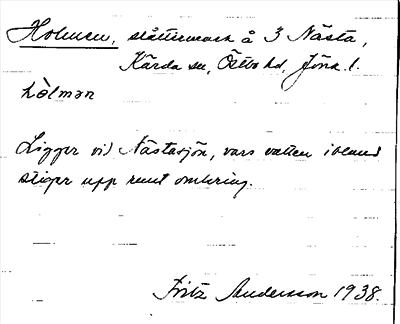 Holmen, slåttermark å 3 Nästa,
Kärda sn, Östbo hd, Jönk. l.
hòlmən
Ligger vid Nästasjön, vars vatten ibland
stiger upp runt omkring.
Fritz Andersson 1938.